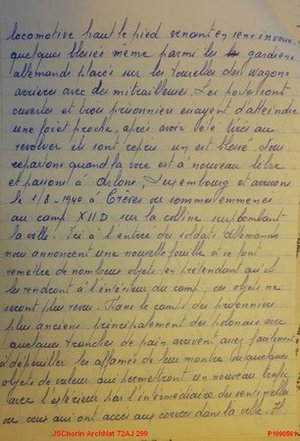 locomotive haut le pied venant en sens inverse
quelques blessés même parmi les gardiens
allemands placés sur les tourelles des wagons
arrières avec des mitrailleuses. Les portes sont
ouvertes et trois prisonniers essayent d'atteindre
une forêt proche, après avoir été tirés au
revolver ils sont repris un est blessé. Nous
repartons quand la voie est à nouveau libre
et passons à Arlone, Luxembourg et arrivons
le 1/8-1940 à Trèves où sommes emmenés
au camp XIID sur la colline surplombant
la ville. Ici à l'entrée des soldats allemands
nous annoncent une nouvelle fouille et se font
remettre de nombreux objets en prétendant qu'ils
les rendront à l'intérieur du camp, ces objets ne
seront plus revus. Dans le camp des prisonniers
plus anciens principalement des polonais avec
quelques tranches de pain arrivent avec facilement
à dépouiller les affamés de leur montre ou quelques
objets de valeur qui permettront un nouveau trafic
avec l'extérieur par l'intermédiaire des sentinelles
ou ceux qui ont accès aux corvées dans la ville. Il
JSChorin ArchNat 72AJ 299
P1090561